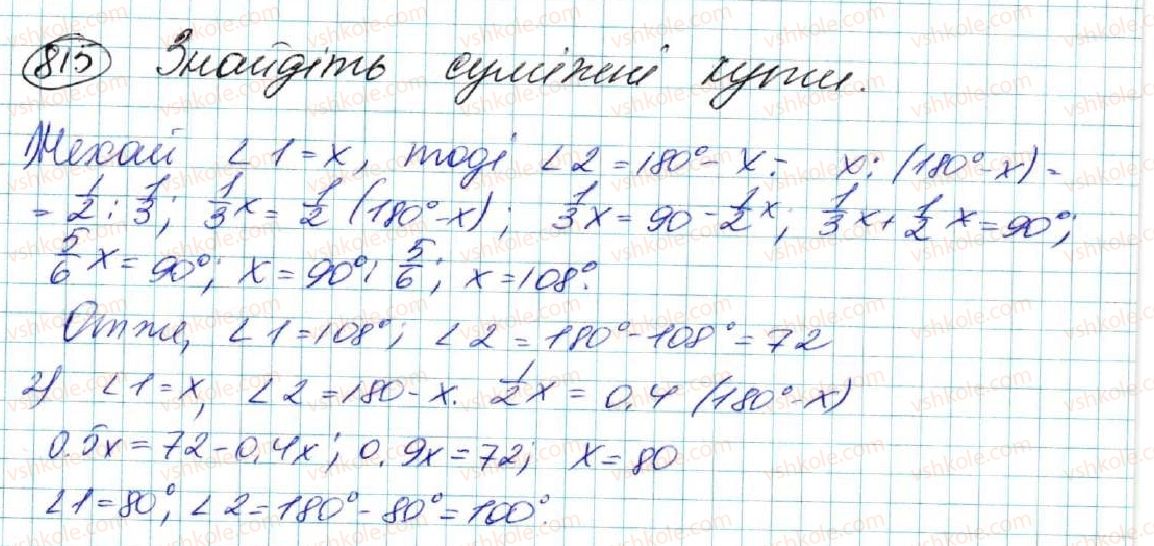 815 Знайдіть суміжні кути.
Нехай ∠1=x, тоді ∠2=180°-x: x:(180°-x)=
=1/2:1/3; 1/3x=1/2(180°-x); 1/3x=90-1/2x; 1/3x+1/2x=90°;
5/6x=90°; x=90°:5/6; x=108°.
Отже, ∠1=108°; ∠2=180°-108°=72
2) ∠1=x, ∠2=180-x. 1/2x=0,4(180°-x)
0.5x=72-0,4x; 0.9x=72; x=80
∠1=80°; ∠2=180°-80°=100°.